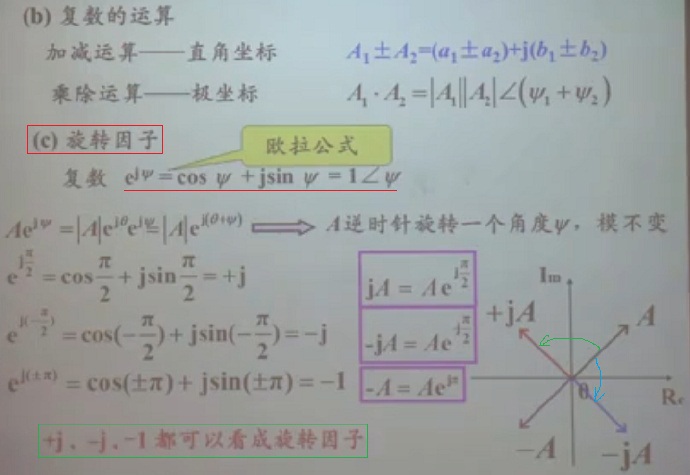 (b) 复数的运算
加减运算——直角坐标 A₁±A₂=(a₁±a₂)+j(b₁±b₂)
乘除运算——极坐标 A₁·A₂=|A₁||A₂|∠(ψ₁+ψ₂)
(c) 旋转因子
欧拉公式
复数 e^{jψ}=cos ψ +jsin ψ = 1∠ψ
Ae^{jψ}=|A|e^{jθ}e^{jψ}=|A|e^{j(θ+ψ)} ⟹ A逆时针旋转一个角度ψ，模不变
e^{j\frac{π}{2}} = cos\frac{π}{2} + jsin\frac{π}{2} = +j
e^{j(-\frac{π}{2})} = cos(-\frac{π}{2}) + jsin(-\frac{π}{2}) = -j
e^{j(±π)} = cos(±π) + jsin(±π) = -1
jA = Ae^{j\frac{π}{2}}
-jA = Ae^{-j\frac{π}{2}}
-A = Ae^{jπ}
Im
+jA
A
θ
Re
-A
-jA
+j、-j、-1 都可以看成旋转因子